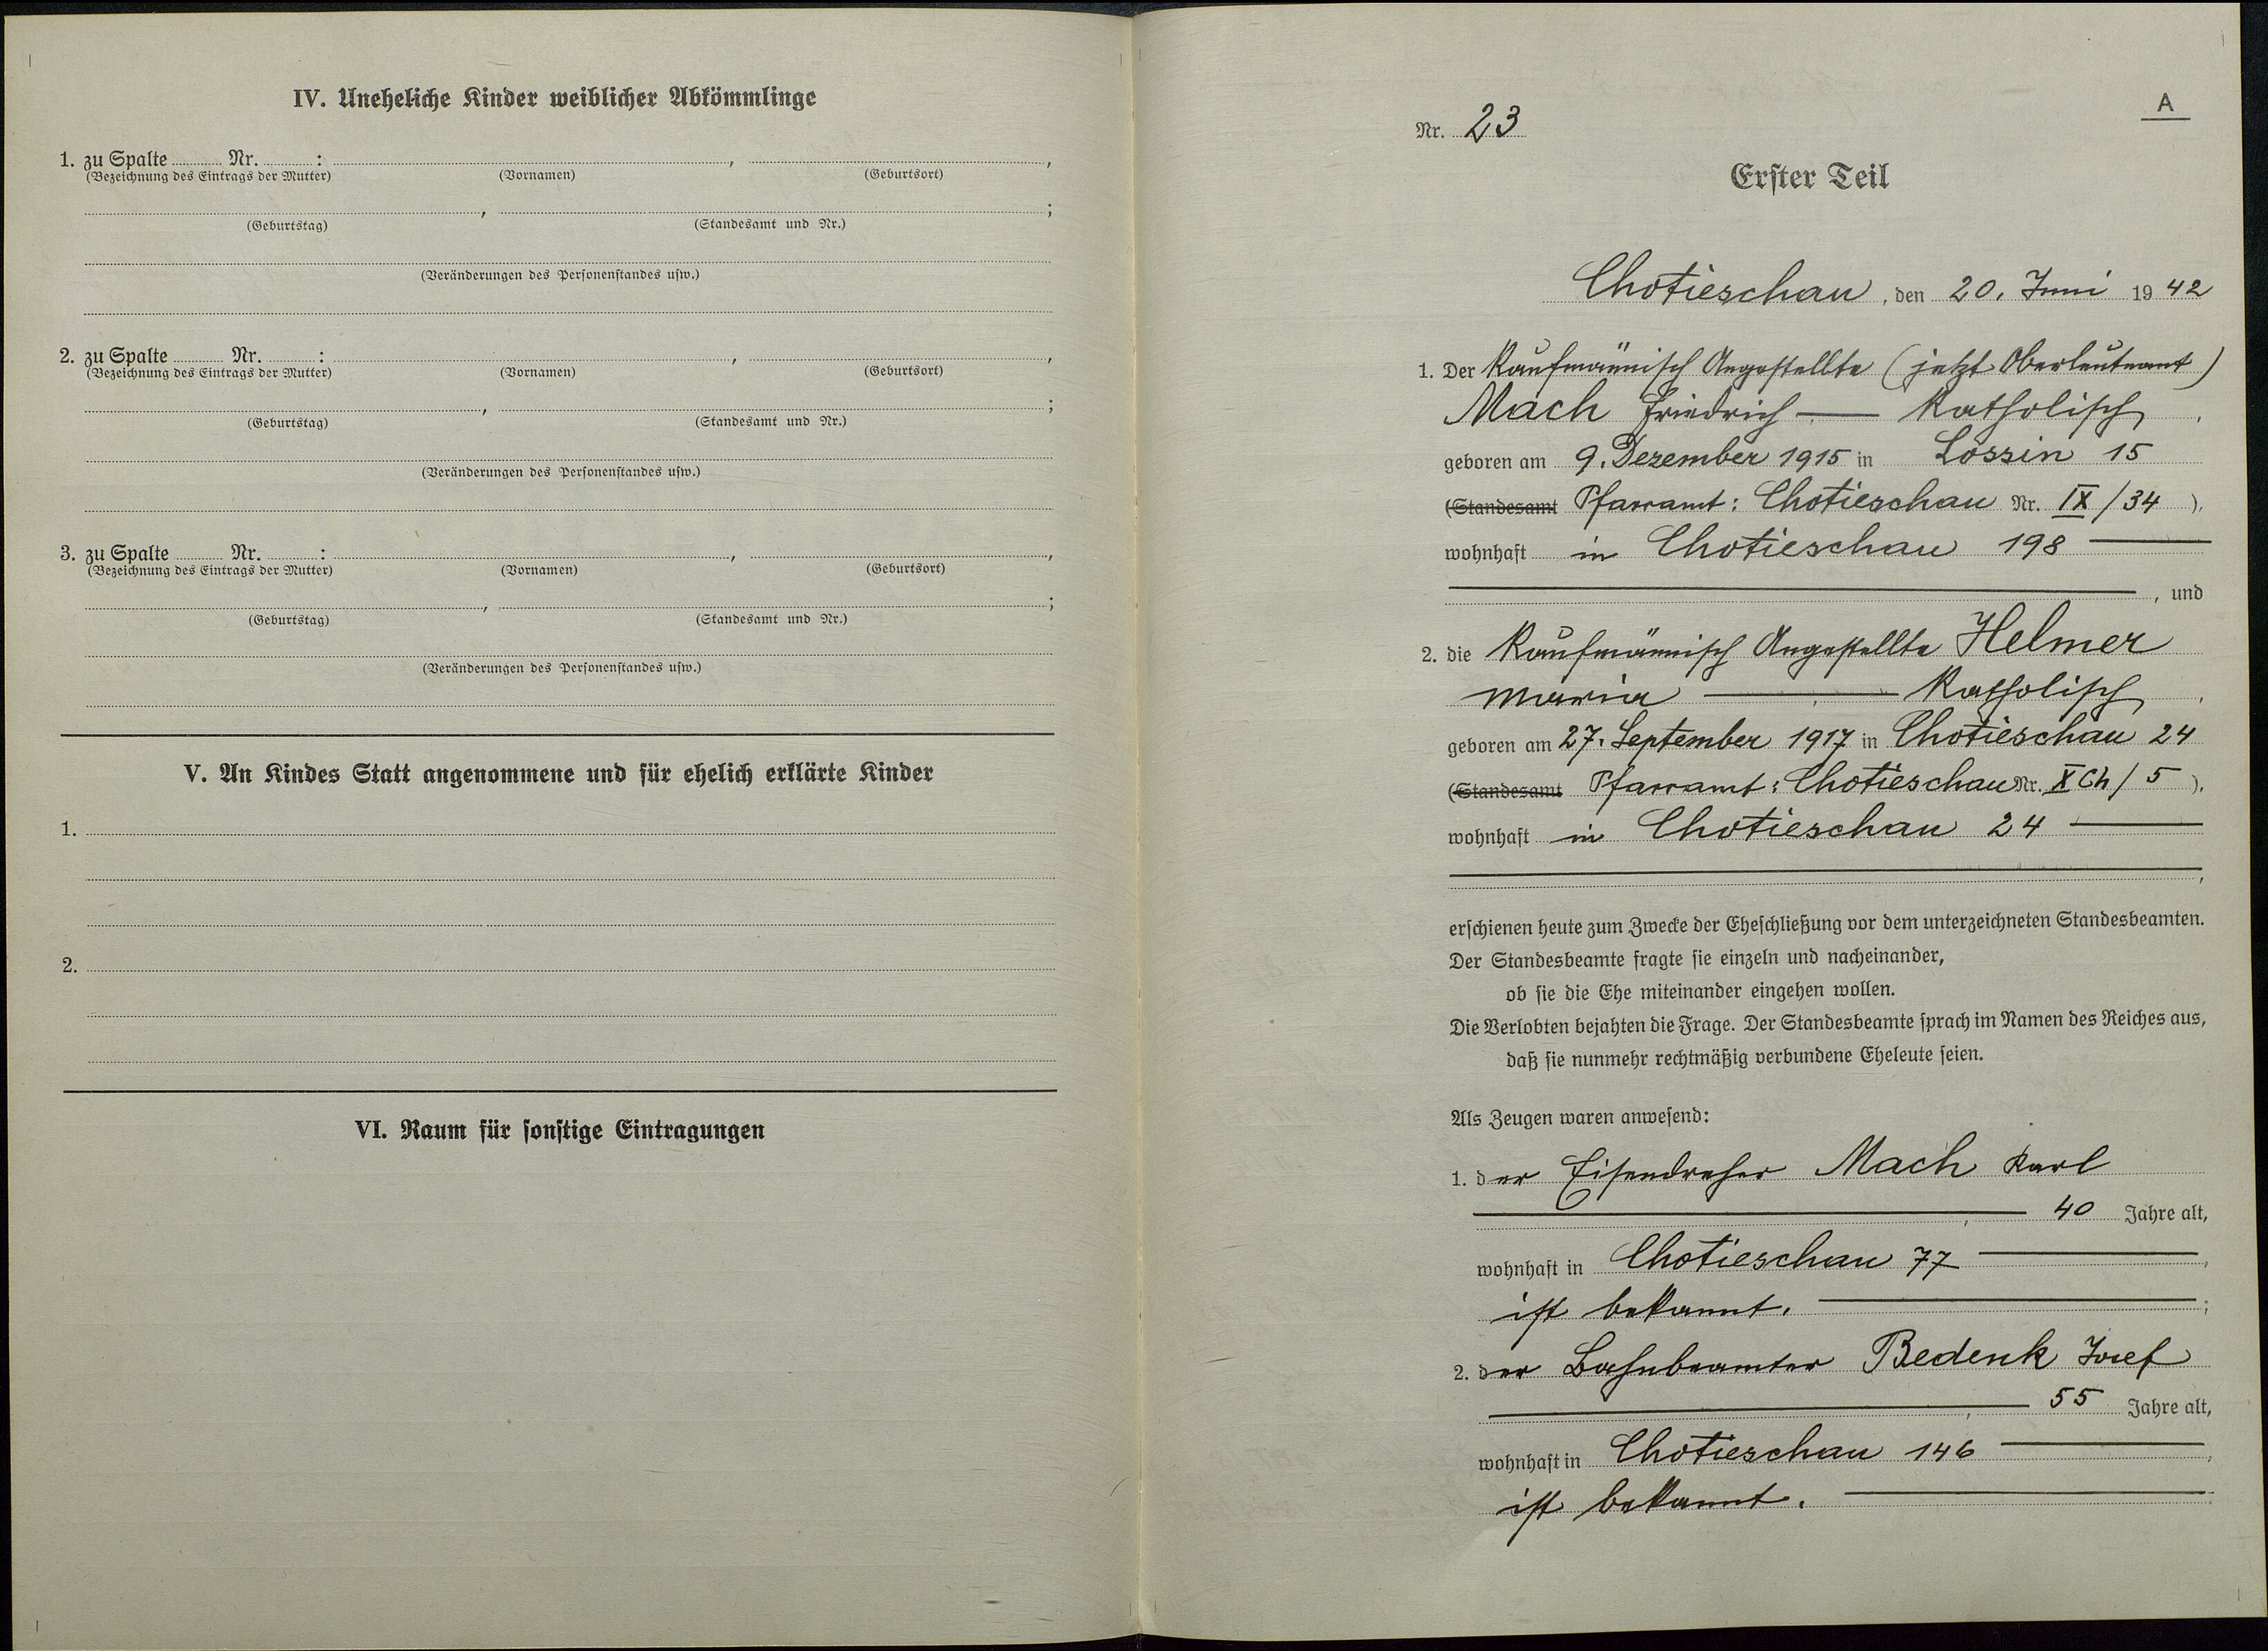 IV. Uneheliche Kinder weiblicher Abkömmlinge
1. zu Spalte Nr. : , ,
(Bezeichnung des Eintrags der Mutter) (Vornamen) (Geburtsort)
, ;
(Geburtstag) (Standesamt und Nr.)
(Veränderungen des Personenstandes usw.)
2. zu Spalte Nr. : , ,
(Bezeichnung des Eintrags der Mutter) (Vornamen) (Geburtsort)
, ;
(Geburtstag) (Standesamt und Nr.)
(Veränderungen des Personenstandes usw.)
3. zu Spalte Nr. : , ,
(Bezeichnung des Eintrags der Mutter) (Vornamen) (Geburtsort)
, ;
(Geburtstag) (Standesamt und Nr.)
(Veränderungen des Personenstandes usw.)
V. An Kindes Statt angenommene und für ehelich erklärte Kinder
1.
2.
VI. Raum für sonstige Eintragungen
A
Nr. 23
Erster Teil
Chotieschau, den 20. Juni 1942
1. Der Kaufmännisch Angestellte (jetzt Oberleutnant)
Mach Friedrich — Katholisch,
geboren am 9. Dezember 1915 in Lossin 15
(Standesamt Pfarramt: Chotieschau Nr. IX/34),
wohnhaft in Chotieschau 198 —
—, und
2. die Kaufmännisch Angestellte Helmer
Maria — Katholisch,
geboren am 27. September 1917 in Chotieschau 24
(Standesamt Pfarramt: Chotieschau Nr. X Ch/5),
wohnhaft in Chotieschau 24 —
—,
erschienen heute zum Zwecke der Eheschließung vor dem unterzeichneten Standesbeamten.
Der Standesbeamte fragte sie einzeln und nacheinander,
ob sie die Ehe miteinander eingehen wollen.
Die Verlobten bejahten die Frage. Der Standesbeamte sprach im Namen des Reiches aus,
daß sie nunmehr rechtmäßig verbundene Eheleute seien.
Als Zeugen waren anwesend:
1. der Eisendreher Mach Karl
—, 40 Jahre alt,
wohnhaft in Chotieschau 77 —,
ist bekannt. —;
2. der Bahnbeamter Bedenk Josef
—, 55 Jahre alt,
wohnhaft in Chotieschau 146 —,
ist bekannt. —.